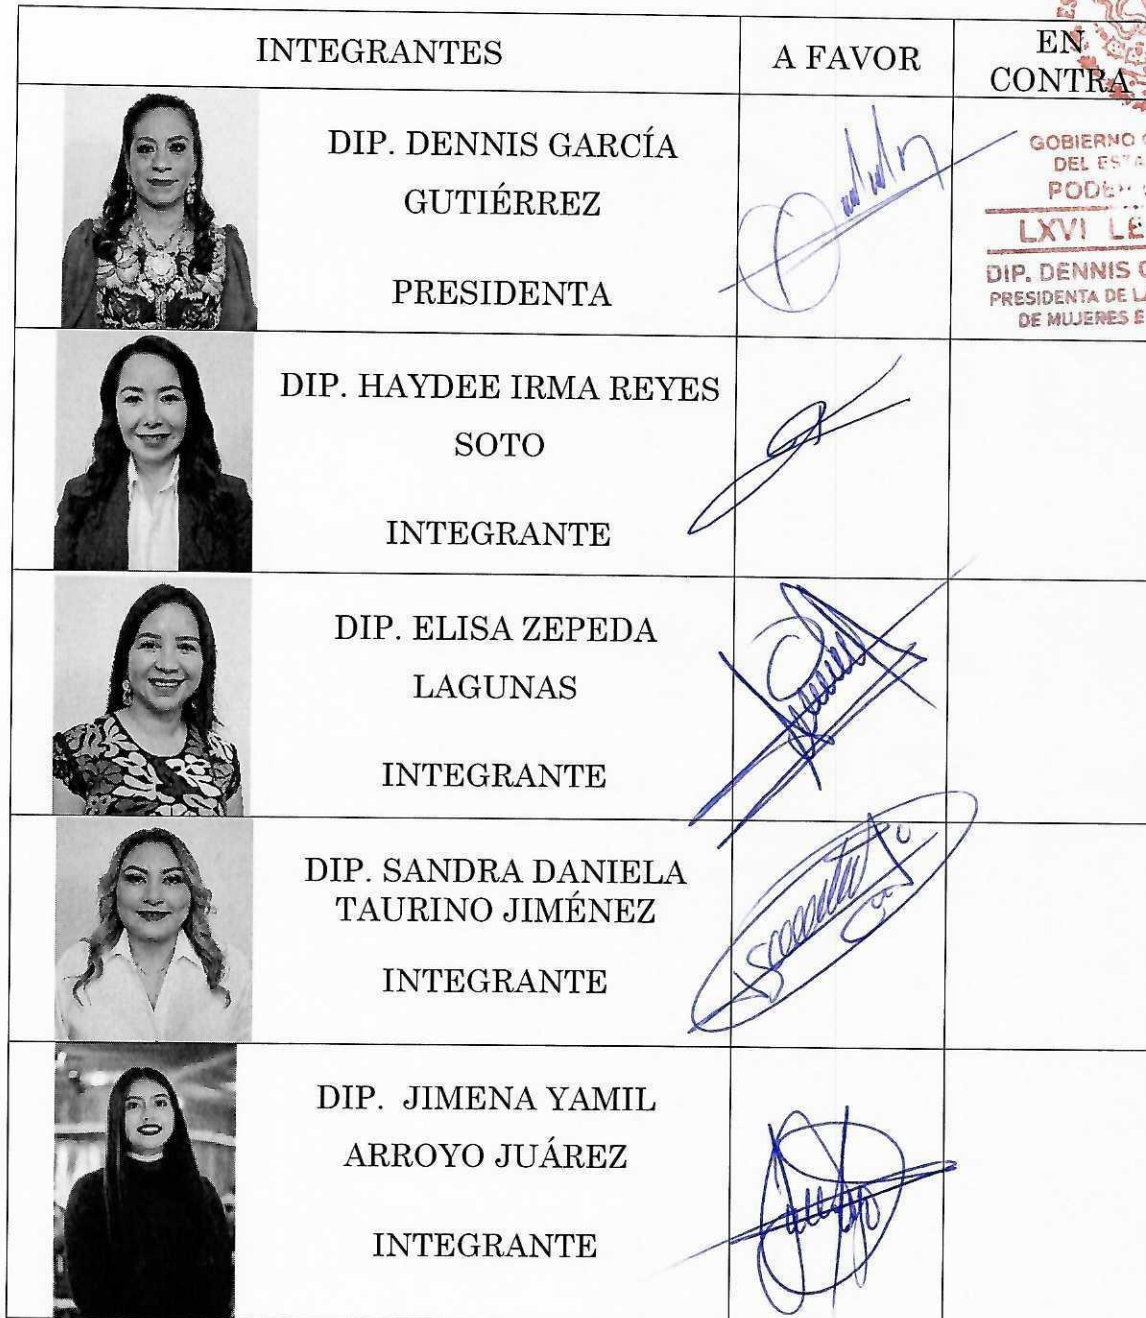 INTEGRANTES
A FAVOR
EN
CONTRA
DIP. DENNIS GARCÍA
GUTIÉRREZ
PRESIDENTA
GOBIERNO
DEL
LXVI
DIP. DENNIS
PRESIDENTA DE
DE MUJERES
DIP. HAYDEE IRMA REYES
SOTO
INTEGRANTE
DIP. ELISA ZEPEDA
LAGUNAS
INTEGRANTE
DIP. SANDRA DANIELA
TAURINO JIMÉNEZ
INTEGRANTE
DIP. JIMENA YAMIL
ARROYO JUÁREZ
INTEGRANTE